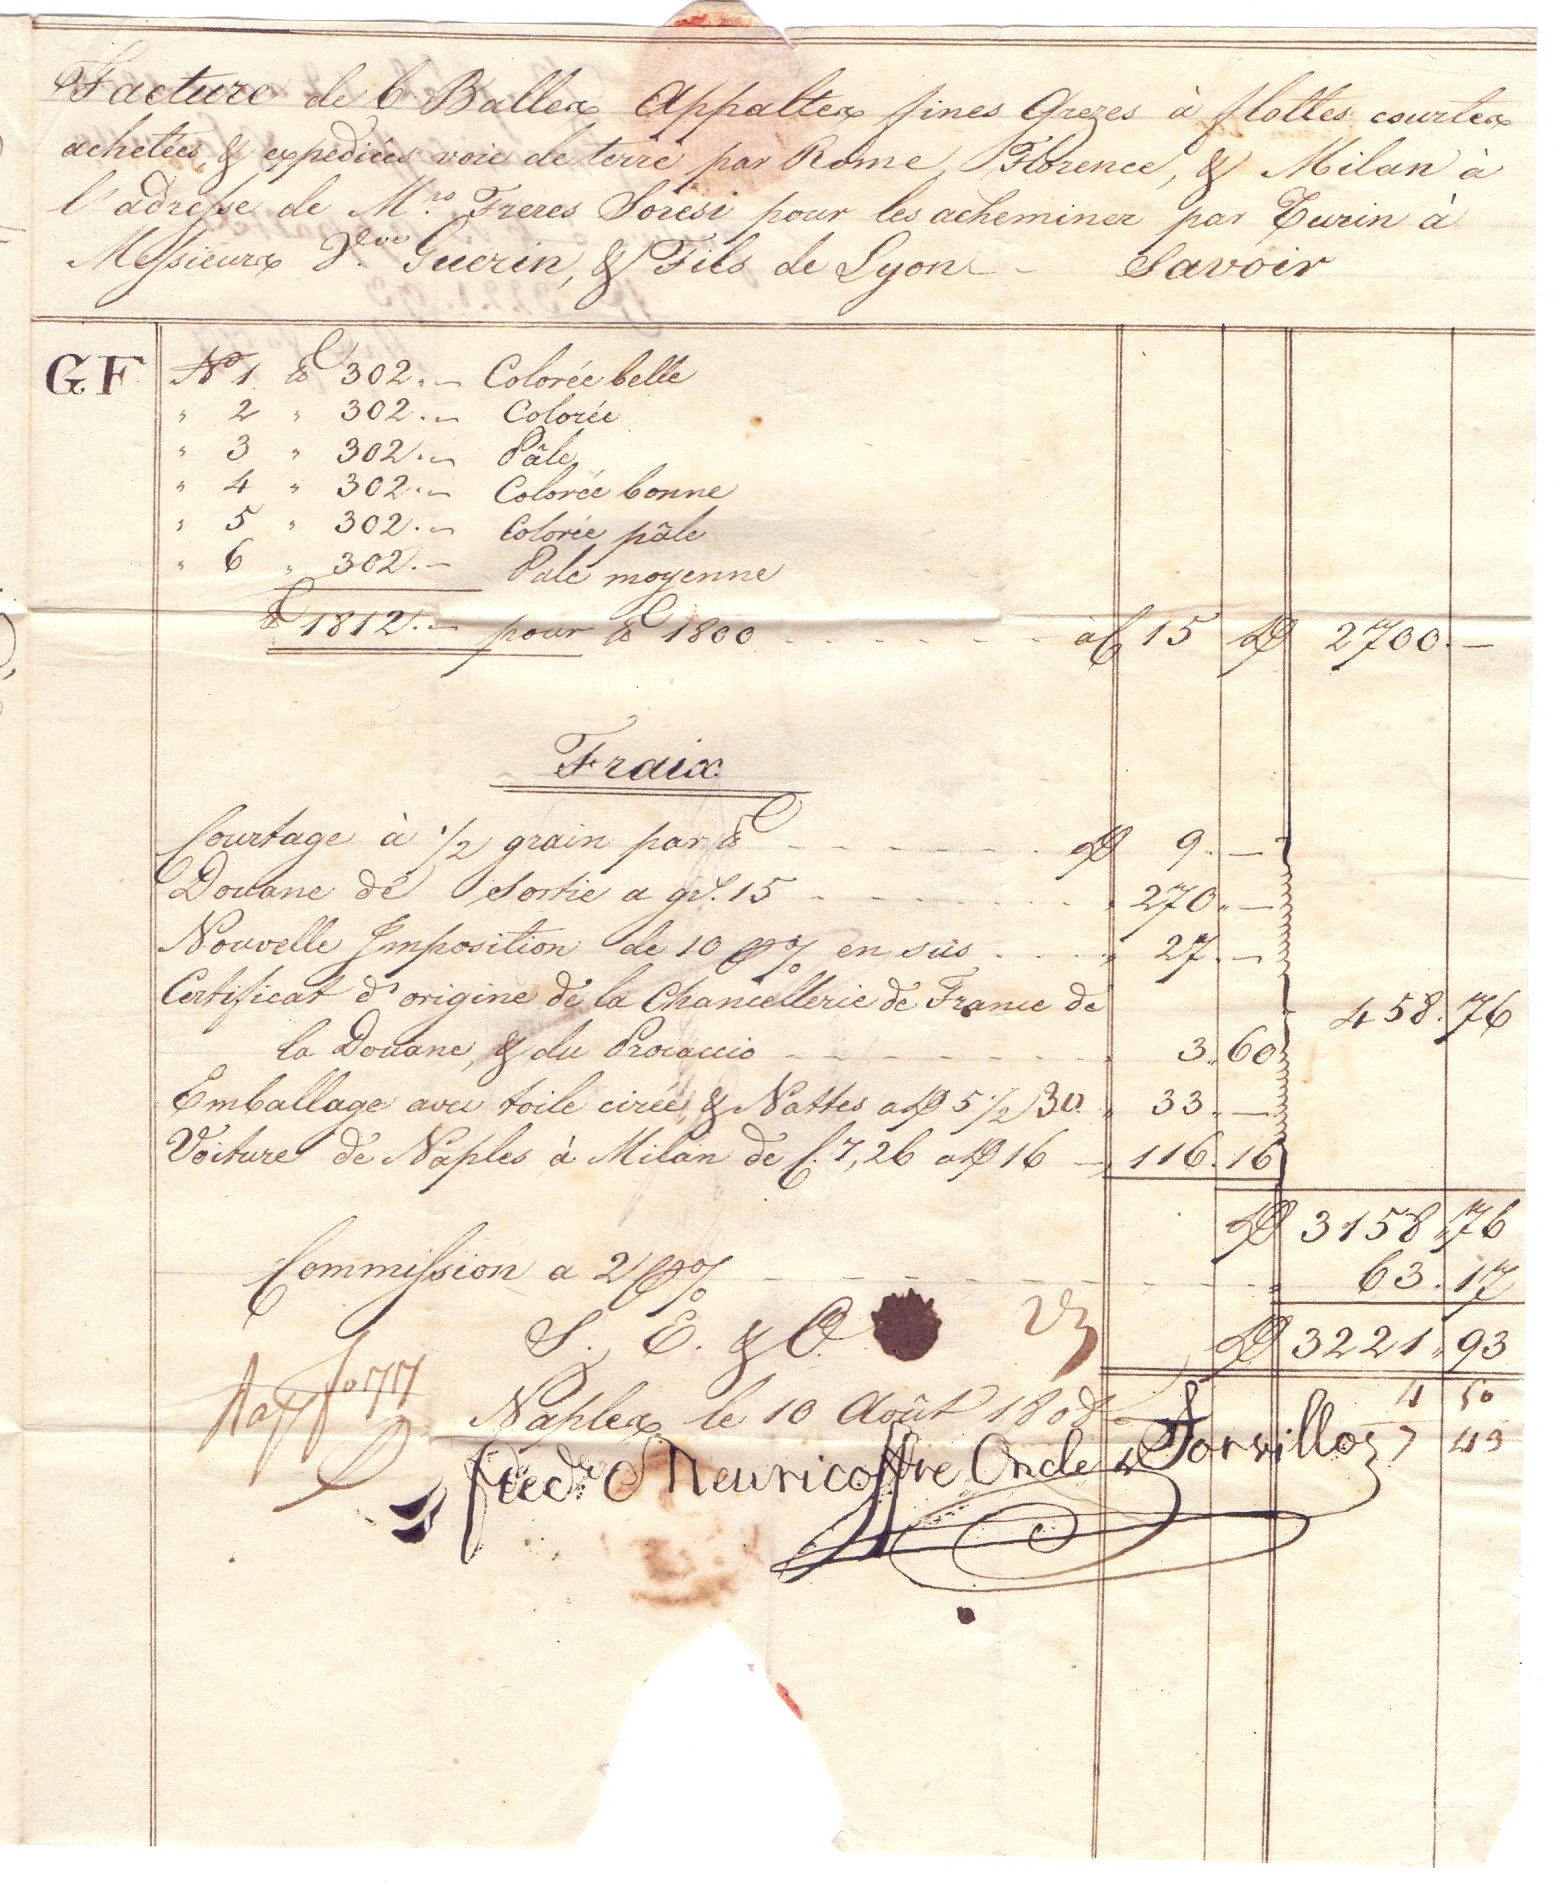 Facture de 6 Balles Appaltes fines Grezes à flottes courtes
achetées, & expediées voie de terre par Rome, Florence, & Milan à
l'adresse de M.rs Freres Soresi pour les acheminer par Turin à
Messieurs V.ve Guerin, & Fils de Lyon Savoir
GF N.o 1 ℔ 302.— Colorée belle
" 2 " 302.— Colorée
" 3 " 302.— Pâle
" 4 " 302.— Colorée bonne
" 5 " 302.— Colorée pâle
" 6 " 302.— Pale moyenne
℔ 1812.— pour ℔ 1800 à 15 D 2700.—
Fraix
Courtage à 1/2 grain par ℔ D 9.—
Douane de Sortie a gr. 15 " 270.—
Nouvelle Imposition de 10 P% en sus " 27.—
Certificat d'origine de la Chancellerie de France de
la Douane, & du Procaccio 3.60
458.76
Emballage avec toile cirée & Nattes a D 5 1/2 30 " 33.—
Voiture de Naples à Milan de C. 7,26 a D 16 — 116.16
D 3158.76
Commission a 2 P% " 63.17
S. E. & O.
D 3221.93
Naples le 10 Août 1808
4 50
7 43
Fredc Meuricoffre Oncle & Sorvillo